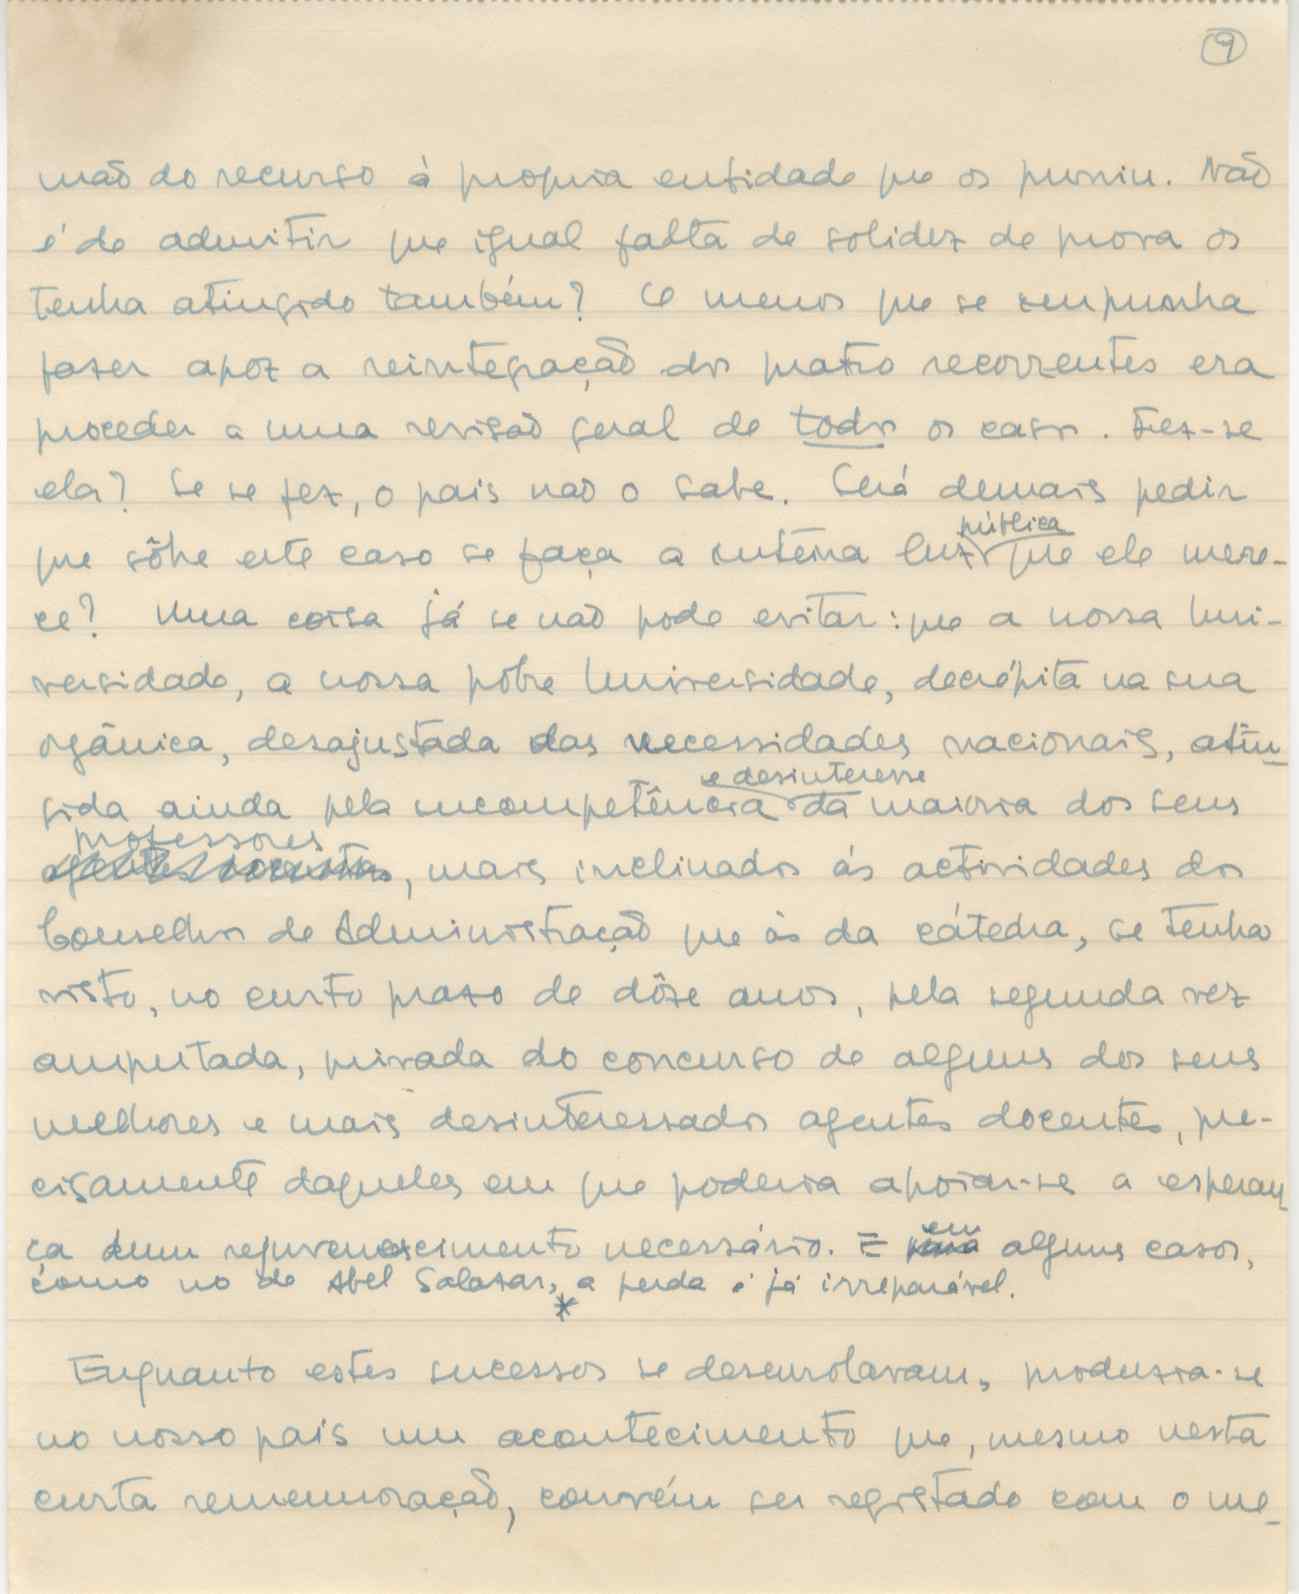 9
mão do recurso à propria entidade que os puniu. Não
é de admitir que igual falta de solidez de prova os
tenha atingido também? O menos que se impunha
fazer apoz a reintegração dos quatro recorrentes era
proceder a uma revisão geral de todos os casos. Fez-se
ela? Se se fez, o país não o sabe. Será demais pedir
pública
que sôbre este caso se faça a inteira luz que ele mere-
ce? Uma coisa já se não pode evitar: que a nossa Uni-
versidade, a nossa pobre Universidade, decrépita na sua
orgânica, desajustada das necessidades nacionais, atin-
e desinteresse
gida ainda pela incompetência da maioria dos seus
professores
agentes docentes, mais inclinados às actividades dos
Conselhos de Administração que às da cátedra, se tenha
visto, no curto prazo de dôze anos, pela segunda vez
amputada, privada do concurso de alguns dos seus
melhores e mais desinteressados agentes docentes, pre-
cisamente daqueles em que poderia apoiar-se a esperan-
em
ça dum rejuvenescimento necessário. E alguns casos,
como no de Abel Salazar, a perda é já irreparável.
*
Enquanto estes sucessos se desenrolavam, produzia-se
no nosso país um acontecimento que, mesmo nesta
curta rememoração, convém ser registado com o me-